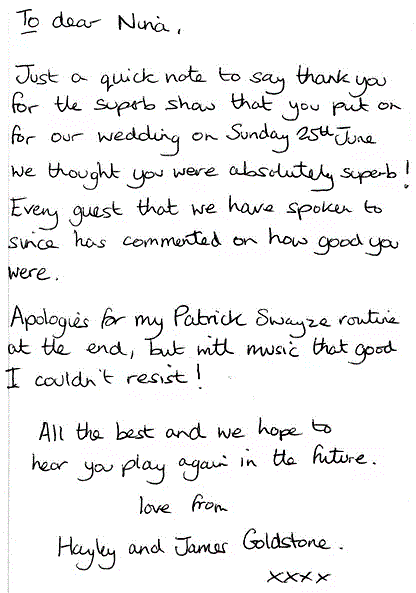 To dear Nina,
Just a quick note to say thank you
for the superb show that you put on
for our wedding on Sunday 25th June
we thought you were absolutely superb!
Every guest that we have spoken to
since has commented on how good you
were.
Apologies for my Patrick Swayze routine
at the end, but with music that good
I couldn't resist!
All the best and we hope to
hear you play again in the future.
love from
Hayley and James Goldstone.
xxxx